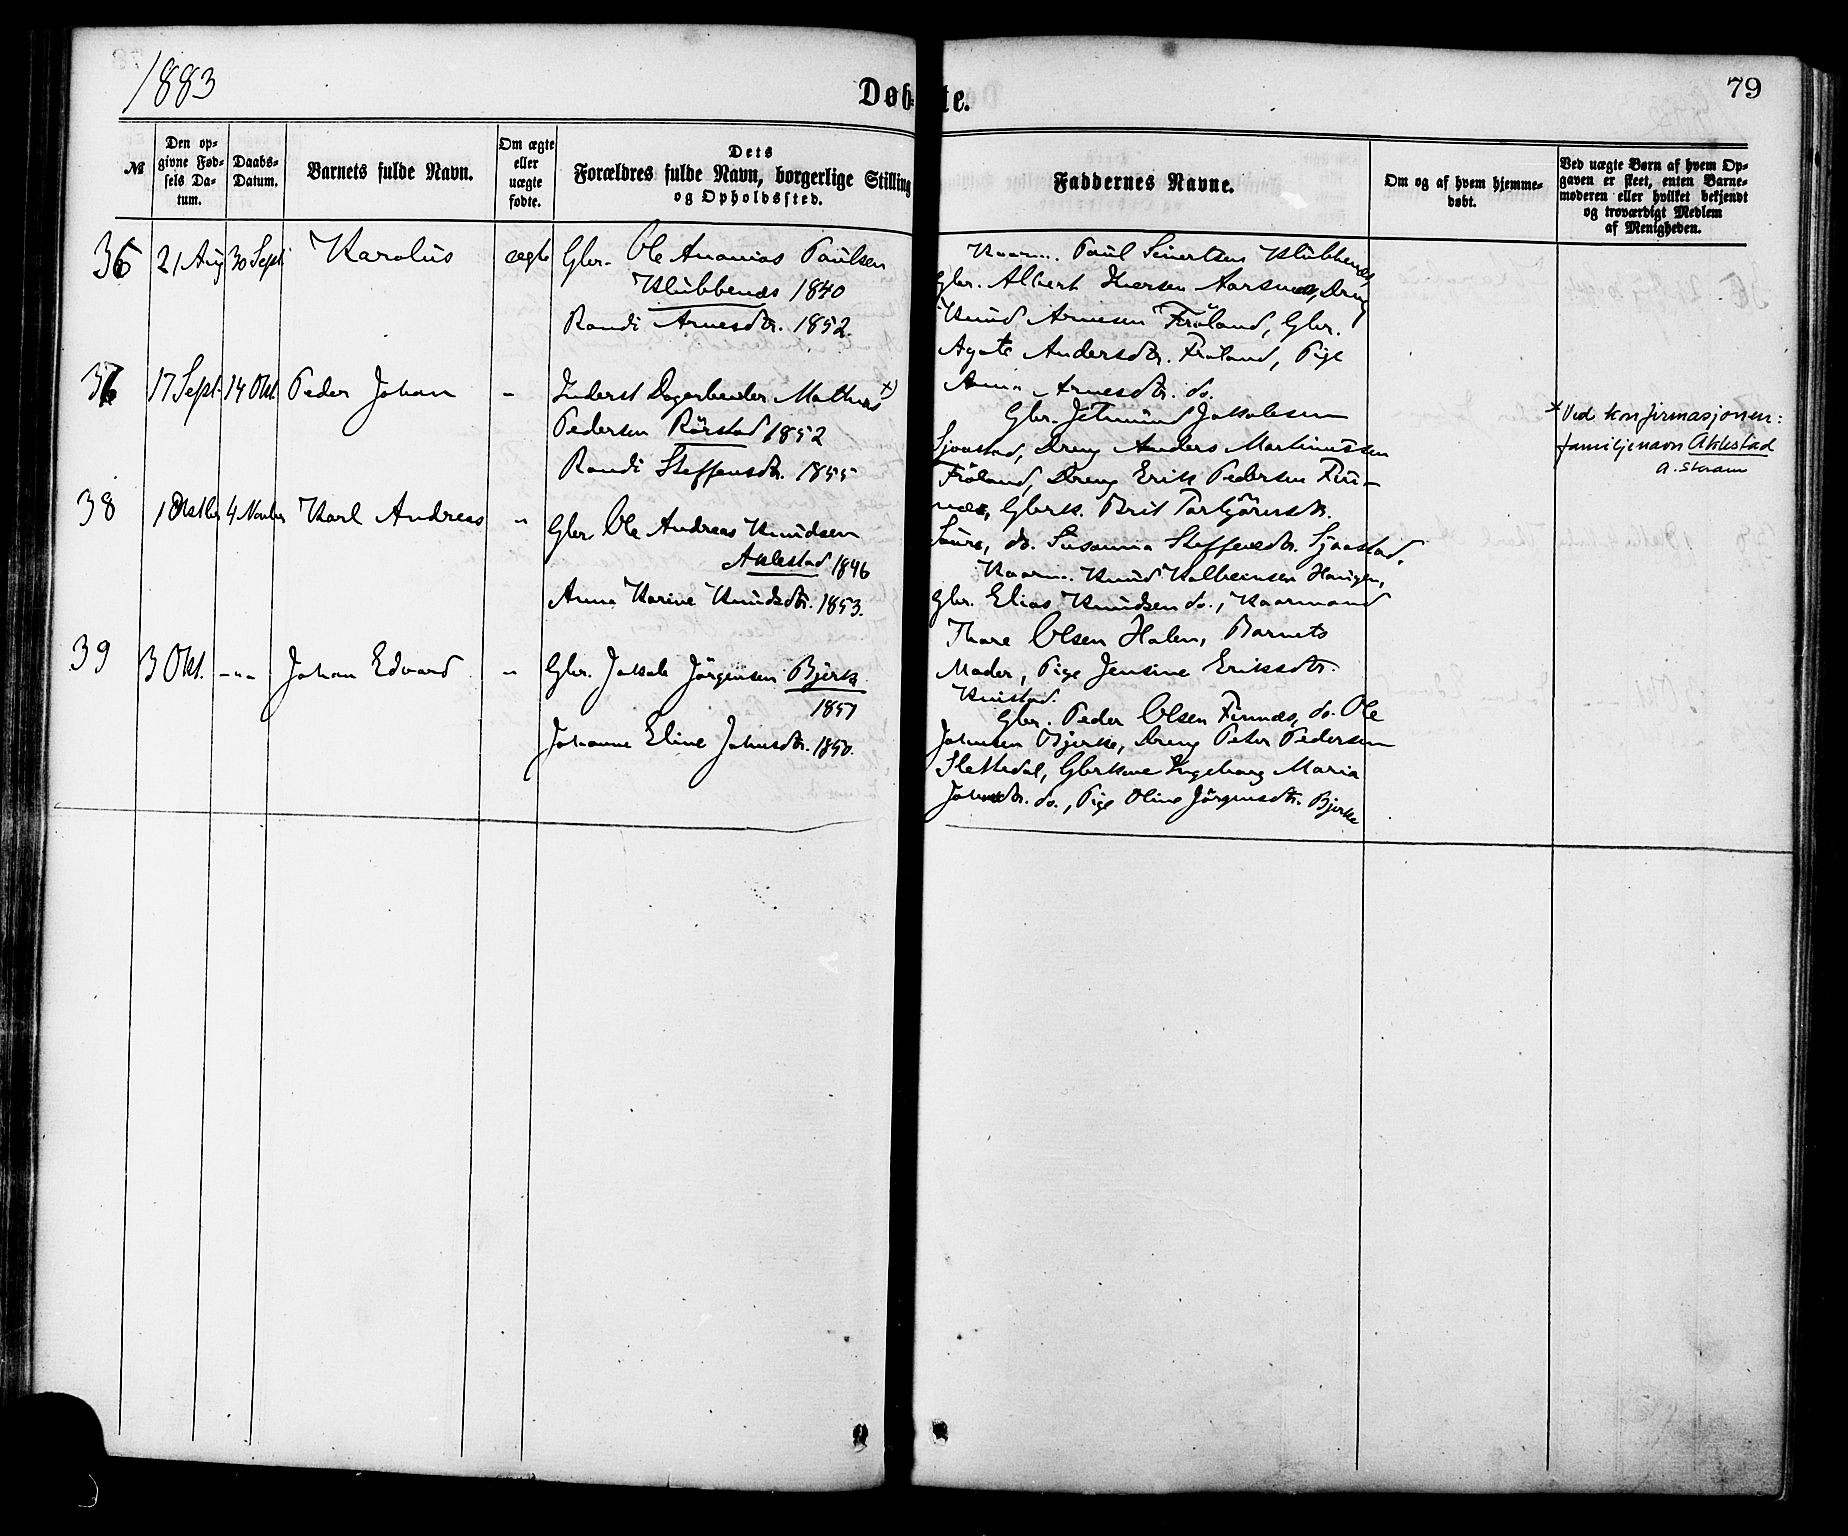 1883
Døbte.
79
№
Den opgivne Fødsels Datum.
Daabs-Datum.
Barnets fulde Navn.
Om ægte eller uægte fødte.
Dets Forældres fulde Navn, borgerlige Stilling og Opholdssted.
Faddernes Navne.
Om og af hvem hjemmedøbt.
Ved uægte Børn af hvem Opgaven er skeet, enten Barnemoderen eller hvilket bekjendt og troværdigt Medlem af Menigheden.
36
21 Aug
30 Sept
Karolus
ægte
Gbr. Ole Ananias Paulsen
Klubbenæs 1840
Randi Arnesdtr. 1852.
Kaarm. Paul Sivertsen Klubbenæs
Gbr. Albert Iversen Aarsnes, Dreng
Knud Arnesen Frøland, Gbr.
Agate Andersdtr. Frøland, Pige
Anna Arnesdtr. do.
37
17 Sept.
14 Okt
Peder Johan
-
Inderst Dagarbeider Mathias x)
Pedersen Rørstad 1852
Randi Steffensdtr. 1855
Gbr. Jetmund Jakobsen
Sjaastad, Dreng Anders Martinussen
Frøland, Dreng Erik Pedersen Fin-
næs, Gbrk. Brit Torbjørnsdtr.
Saure, do. Susanna Steffensdtr. Sjaastad.
* Ved konfirmasjonen:
familjenavn Aklestad
A. Skram
38
1 Oktbr
4 Novber
Karl Andreas
"
Gbr Ole Andreas Knudsen
Aklestad 1846
Anne Karine Knudsdtr. 1853.
Kaarm. Knud Kolbeinsen Haugen,
Gbr. Elias Knudsen do., Kaarmand
Thore Olsen Holen, Barnets
Moder, Pige Jensine Eriksdtr.
Knistad.
39
3 Okt.
-"-
Johan Edvard
"
Gbr. Jakob Jørgensen Bjerk
1851
Johanne Eline Johnsdtr. 1850.
Gbr. Peder Olsen Finnæs, do. Ole
Johnsen Bjerke, Dreng Peter Pedersen
Slettedal, Gbrkone Ingeborg Maria
Johnsdtr. do., Pige Oline Jørgensdtr. Bjerke